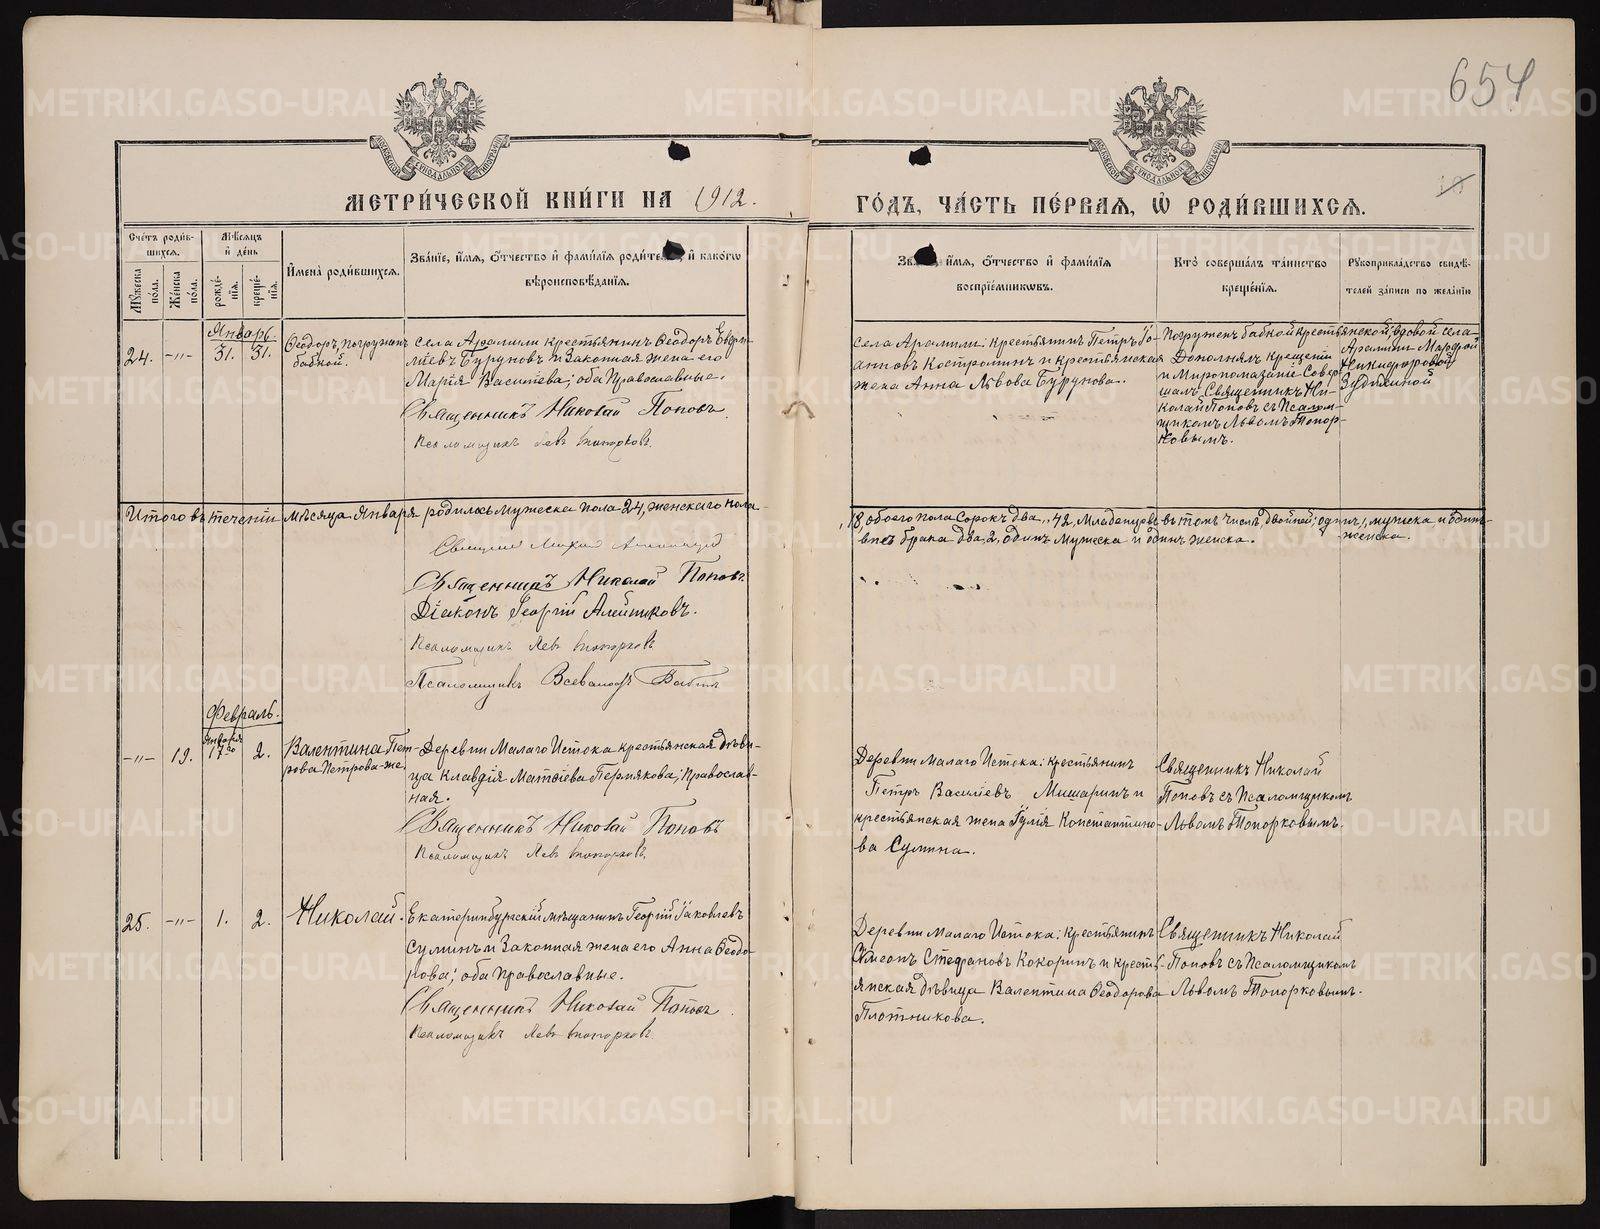 654
МОСКОВСКОЙ СѴНОДАЛЬНОЙ ТИПОГРАФІИ
МОСКОВСКОЙ СѴНОДАЛЬНОЙ ТИПОГРАФІИ
МЕТРИ́ЧЕСКОЙ КНИ́ГИ НА 1912. ГО́ДЪ, ЧА́СТЬ ПЕ́РВАѦ, Ѡ҆ РОДИ́ВШИХСѦ.
Сче́тъ роди́в-
шихсѧ.
Мѣ́сѧцъ
и҆ де́нь
Мꙋ́жеска по́ла.
Же́нска по́ла.
рожде́-
нїѧ.
креще́-
нїѧ.
И҆мена̀ роди́вшихсѧ.
Зва́нїе, и҆́мѧ, ѻ҆́тчество и҆ фами́лїѧ роди́те и҆ како́гѡ
вѣроисповѣ́данїѧ.
Зв и҆́мѧ, ѻ҆́тчество и҆ фами́лїѧ
воспрїе́мникѡвъ.
Кто̀ соверша́лъ та́инство
креще́нїѧ.
Рꙋкоприкла́дство свидѣ́-
телей за́писи по жела́нїю
Январь.
24. -„- 31. 31.
Ѳеодоръ, погруженъ
бабкой.
Села Арамили крестьянинъ Ѳеодоръ Евѳи-
міевъ Буруновъ и законная жена его
Марія Васильева; оба православные.
Священникъ Николай Поповъ.
Псаломщикъ Левъ Топорковъ.
Села Арамили: крестьянинъ Петръ Іо-
анновъ Костроминъ и крестьянская
жена Анна Львова Бурунова.
Погруженъ бабкой крестьянской вдовой села
Арамили Марѳой
Никифоровой
Дополнялъ крещеніе
и Миропомазаніе Совер-
шалъ Священникъ Ни-
колай Поповъ съ Псалом-
щикомъ Львомъ Топор-
ковымъ.
Итого въ теченіи мѣсяца Января родилось Мужеска пола 24, женскаго пола
18, обоего пола Сорокъ два „42, Младенцовъ въ томъ числѣ, двойней; одинъ, мужска и одинъ
женска.
внѣ брака два, 2, одинъ Мужска и одинъ женска.
Священникъ Николай Поповъ.
Діаконъ Георгій Алейниковъ.
Псаломщикъ Левъ Топорковъ
Псаломщикъ Всеволодъ Бабинъ
Февраль.
Января
-„- 19. 17го 2.
Валентина Пет-
рова Петрова-же.
Деревни Малаго Истока крестьянская дѣви-
ца Клавдія Матѳіева Пермякова; православ-
ная.
Священникъ Николай Поповъ
Псаломщикъ Левъ Топорковъ.
Деревни Малаго Истока: крестьянинъ
Петръ Василіевъ Мишаринъ и
крестьянская жена Іулія Константино-
ва Сумина.
Священникъ Николай
Поповъ съ Псаломщикомъ
Львомъ Топорковымъ.
25. -„- 1. 2.
Николай.
Екатеринбургскій мѣщанинъ Георгій Іаковлевъ
Суминъ и законная жена его Анна Ѳеодо-
рова; оба православные.
Священникъ Николай Поповъ
Псаломщикъ Левъ Топорковъ.
Деревни Малаго Истока: крестьянинъ
Симеонъ Стефановъ Кокоринъ и кресть-
янская дѣвица Валентина Ѳеодорова
Плотникова.
Священникъ Николай
Поповъ съ Псаломщикомъ
Львомъ Топорковымъ.
METRIKI.GASO-URAL.RU